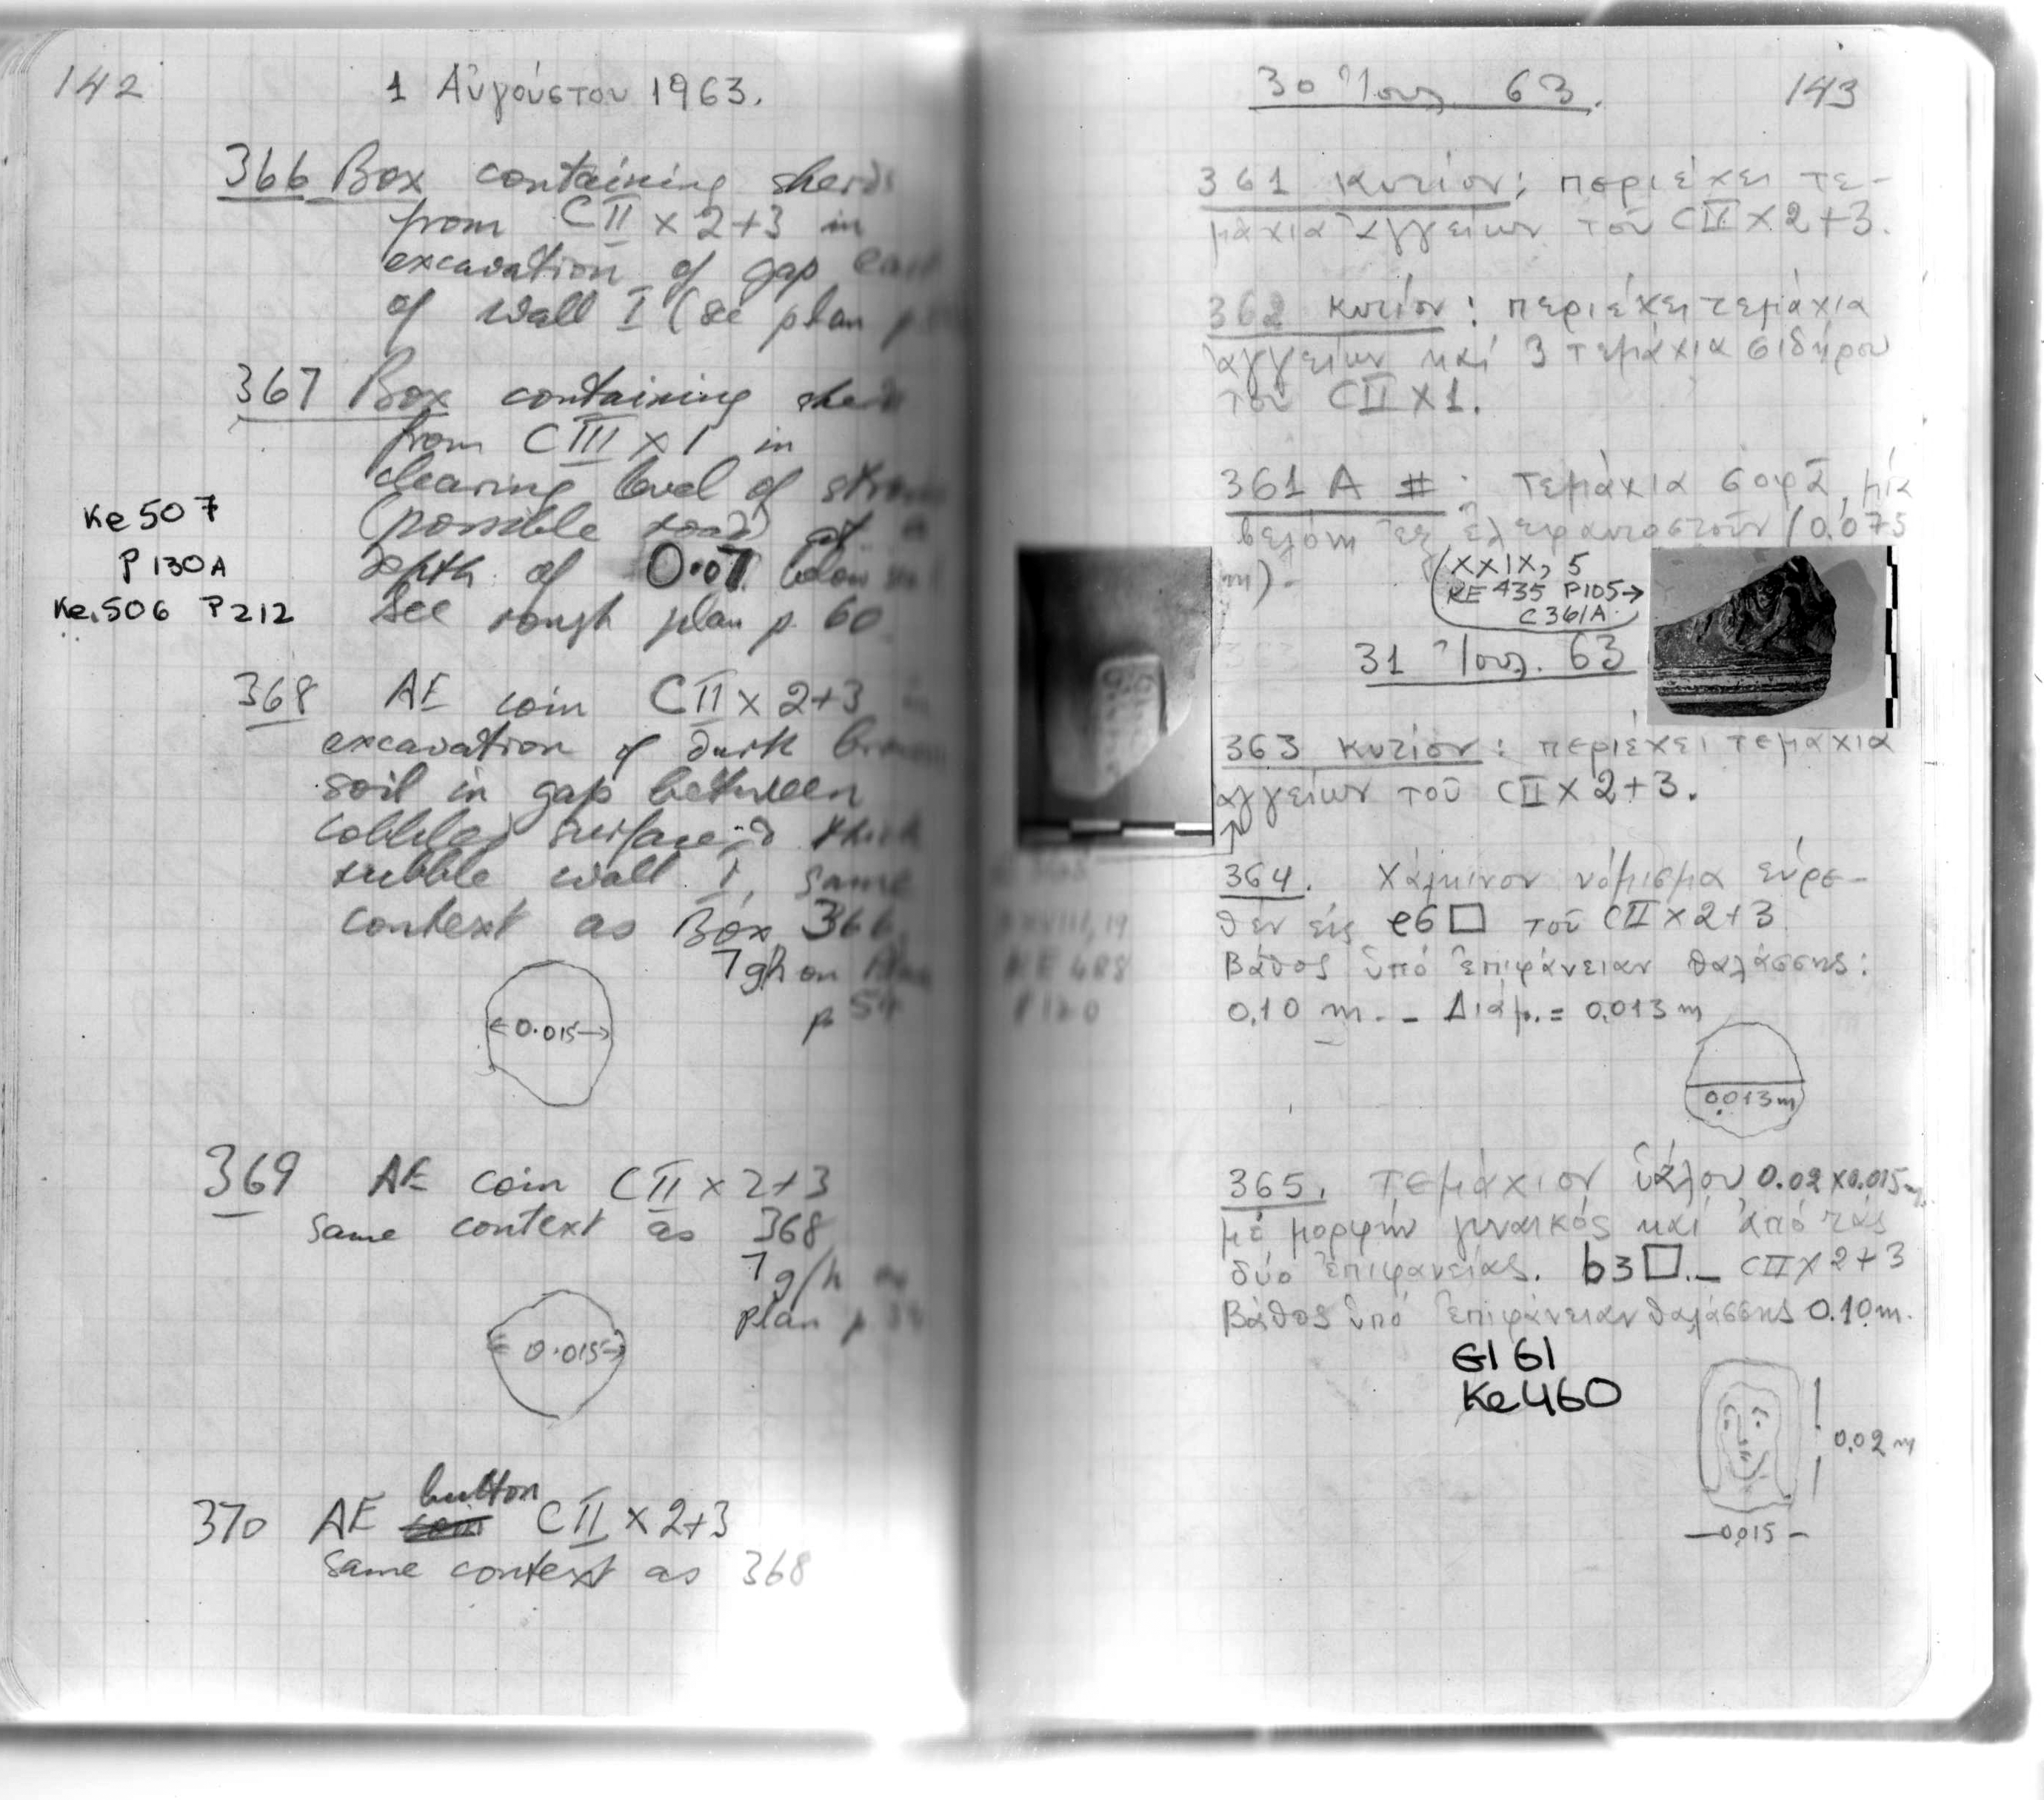 142
1 Αὐγούστου 1963.
366 Box containing sherds
from CII x 2+3 in
excavation of gap east
of wall I (see plan p.
367 Box containing
from CIII x 1 in
clearing level of
(possible road) at
depth of 0.07 below
See rough plan p. 60
Ke 507
P 130A
Ke.506 P212
368 AE coin CII x 2+3
excavation of dark brown
soil in gap between
cobbled surface & thick
rubble wall I, same
context as Box 366
gh on Plan
p 54
0.015
369 AE coin CII x 2+3
same context as 368
g/h on
plan p
0.015
370 AE button CII x 2+3
same context as 368
30 Ἰουλ. 63.
143
361 Κυτίον: περιέχει τε-
μάχια ἀγγείων τοῦ CII X 2+3.
362 Κυτίον: περιέχει τεμάχια
ἀγγείων καί 3 τεμάχια σιδήρου
τοῦ CII X 1.
361 A #: Τεμάχια σοφᾶ, μία
βελόνη ἐξ ἐλεφαντοστοῦν (0.075
m).
(XXIX, 5
KE 435 P105→
C361A.
31 Ἰουλ. 63
363 κυτίον: περιέχει τεμάχια
ἀγγείων τοῦ CII X 2+3.
XXVIII, 19
KE 488
364. Χάλκινον νόμισμα εὑρε-
θέν εἰς e6□ τοῦ CII X 2+3
Βάθος ὑπό ἐπιφάνειαν θαλάσσης:
0.10 m. - Διάμ. = 0.013 m
0.013 m
365. Τεμάχιον ὑάλου 0.02 X 0.015 m.
μέ μορφήν γυναικός καί ἀπό τάς
δύο ἐπιφανείας. b3□.- CII X 2+3
Βάθος ὑπό ἐπιφάνειαν θαλάσσης 0.10 m.
Gl 61
Ke 460
0.02 m
0.015